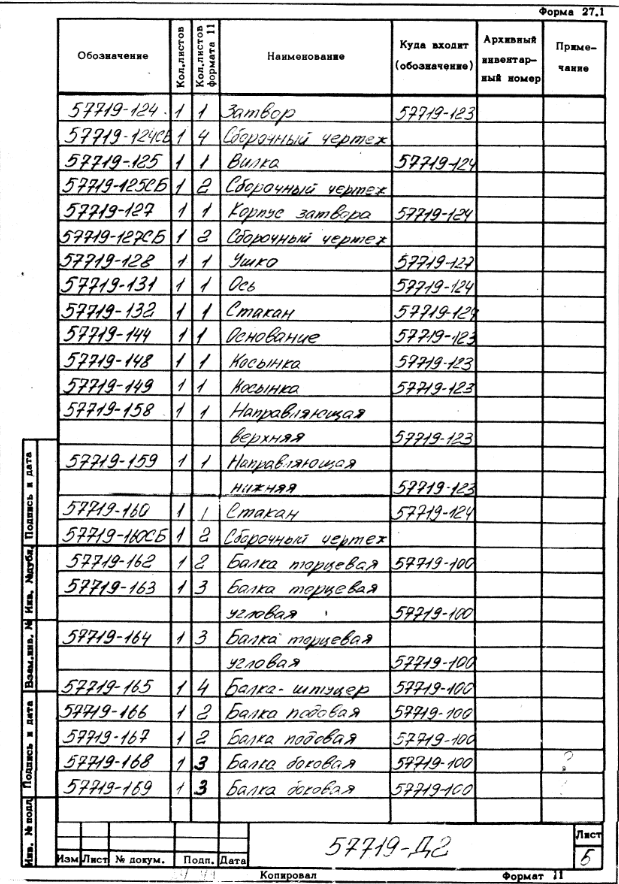 Форма 27.1
Обозначение Кол.листов Кол.листов формата 11 Наименование Куда входит (обозначение) Архивный инвентарный номер Примечание
57719-124 1 1 Затвор 57719-123
57719-124СБ 1 4 Сборочный чертеж
57719-125 1 1 Вилка 57719-124
57719-125СБ 1 2 Сборочный чертеж
57719-127 1 1 Корпус затвора 57719-124
57719-127СБ 1 2 Сборочный чертеж
57719-128 1 1 Ушко 57719-127
57719-131 1 1 Ось 57719-124
57719-132 1 1 Стакан 57719-124
57719-144 1 1 Основание 57719-123
57719-148 1 1 Косынка 57719-123
57719-149 1 1 Косынка 57719-123
57719-158 1 1 Направляющая
верхняя 57719-123
57719-159 1 1 Направляющая
нижняя 57719-123
57719-160 1 1 Стакан 57719-124
57719-160СБ 1 2 Сборочный чертеж
57719-162 1 2 Балка торцевая 57719-100
57719-163 1 3 Балка торцевая
угловая 57719-100
57719-164 1 3 Балка торцевая
угловая 57719-100
57719-165 1 4 Балка-штуцер 57719-100
57719-166 1 2 Балка подовая 57719-100
57719-167 1 2 Балка подовая 57719-100
57719-168 1 3 Балка боковая 57719-100
57719-169 1 3 Балка боковая 57719-100
Инв. № подл. Подпись и дата Взам.инв. № Инв. № дубл. Подпись и дата
Изм Лист № докум. Подп. Дата
57719-Д2
Лист
5
Копировал Формат 11